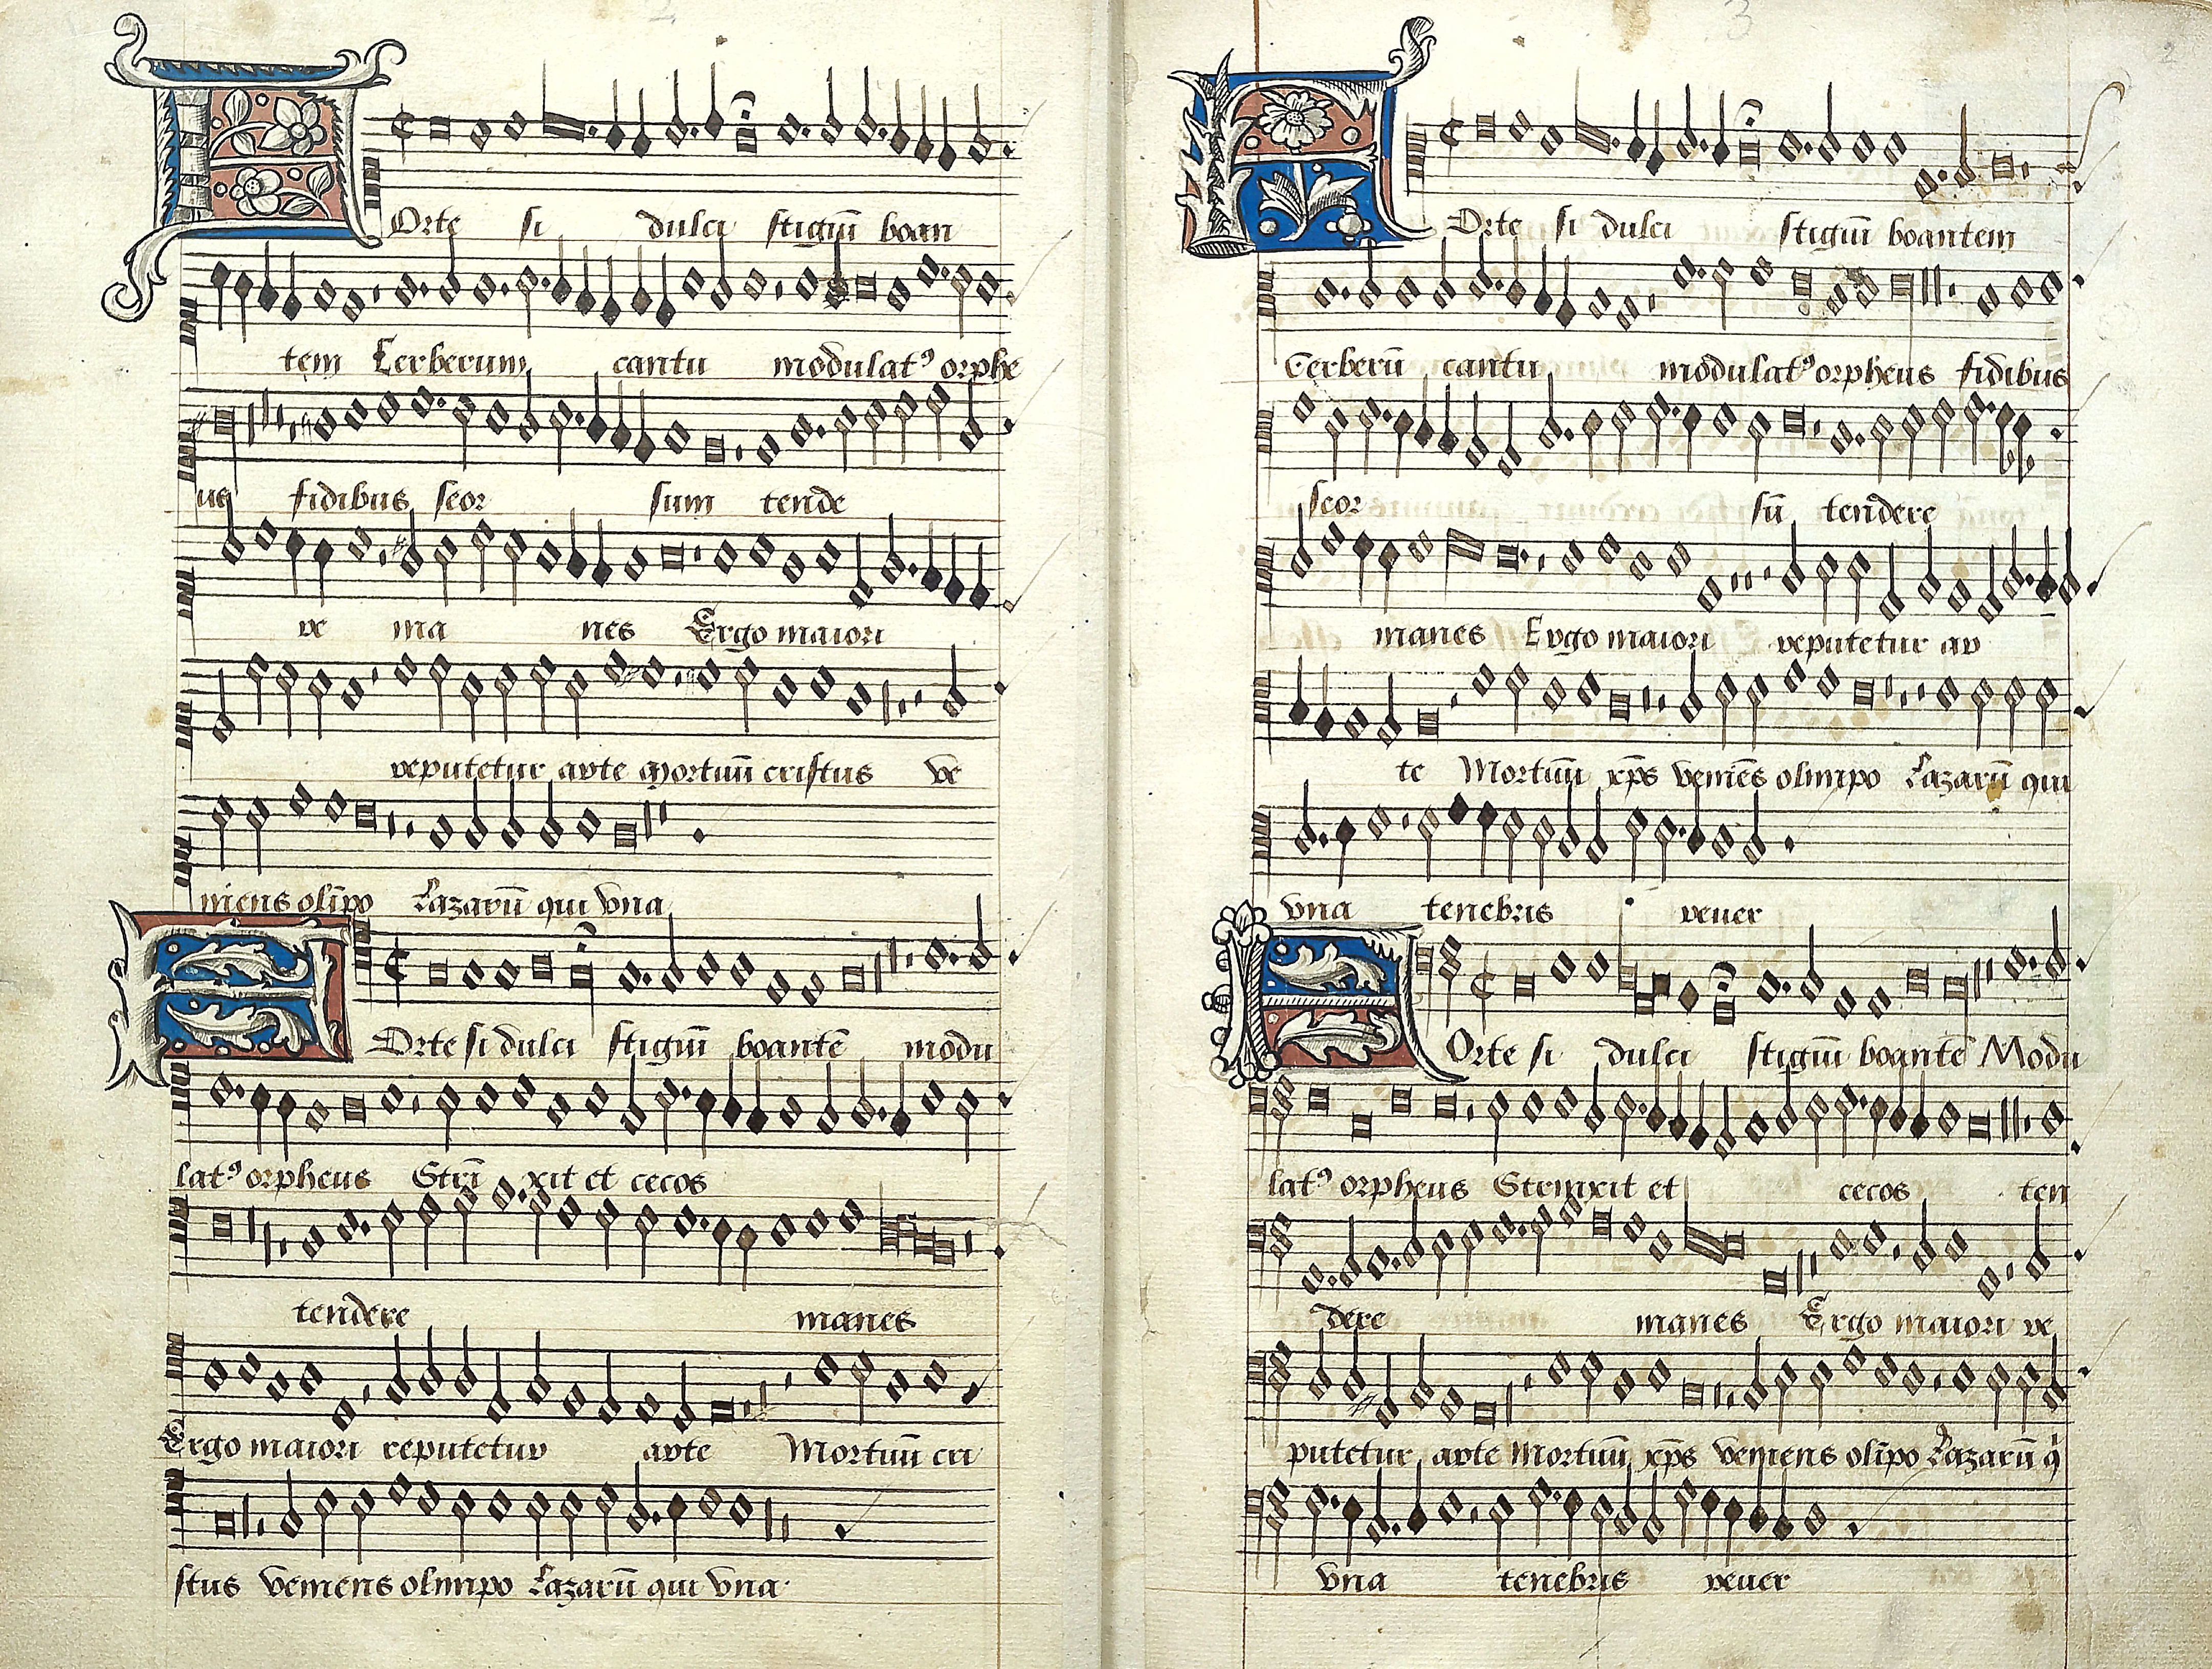 2
Forte si dulci stigiū boan
tem Cerberum cantu modulatꝰ orphe
us fidibus seor sum tende
re ma nes Ergo maiori
reputetur arte Mortuū cristus ve
niens olīpo Lazarū qui vna
Forte si dulci stigiū boantē modu
latꝰ orpheus Strī xit et cecos
tendere manes
Ergo maiori reputetur arte Mortuū cri
stus veniens olimpo Lazarū qui vna
3
2
Forte si dulci stigiū boantem
Cerberū cantu modulatꝰ orpheus fidibus
seor sū tendere
manes Ergo maiori reputetur ar
te Mortuū xp̄s veniēs olimpo Lazarū qui
vna tenebris reuer
Forte si dulci stigiū boantē Modu
latꝰ orpheus Strinxit et cecos ten
dere manes Ergo maiori re
putetur arte Mortuū xp̄s veniens olīpo Lazarū q
vna tenebris reuer